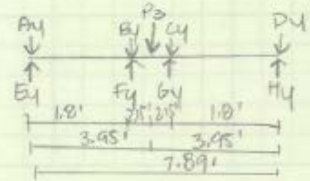 Ay By P3 Cy Dy
Ey Fy Gy Hy
1.8' 2.15' 2.15' 1.8'
3.95' 3.95'
7.89'